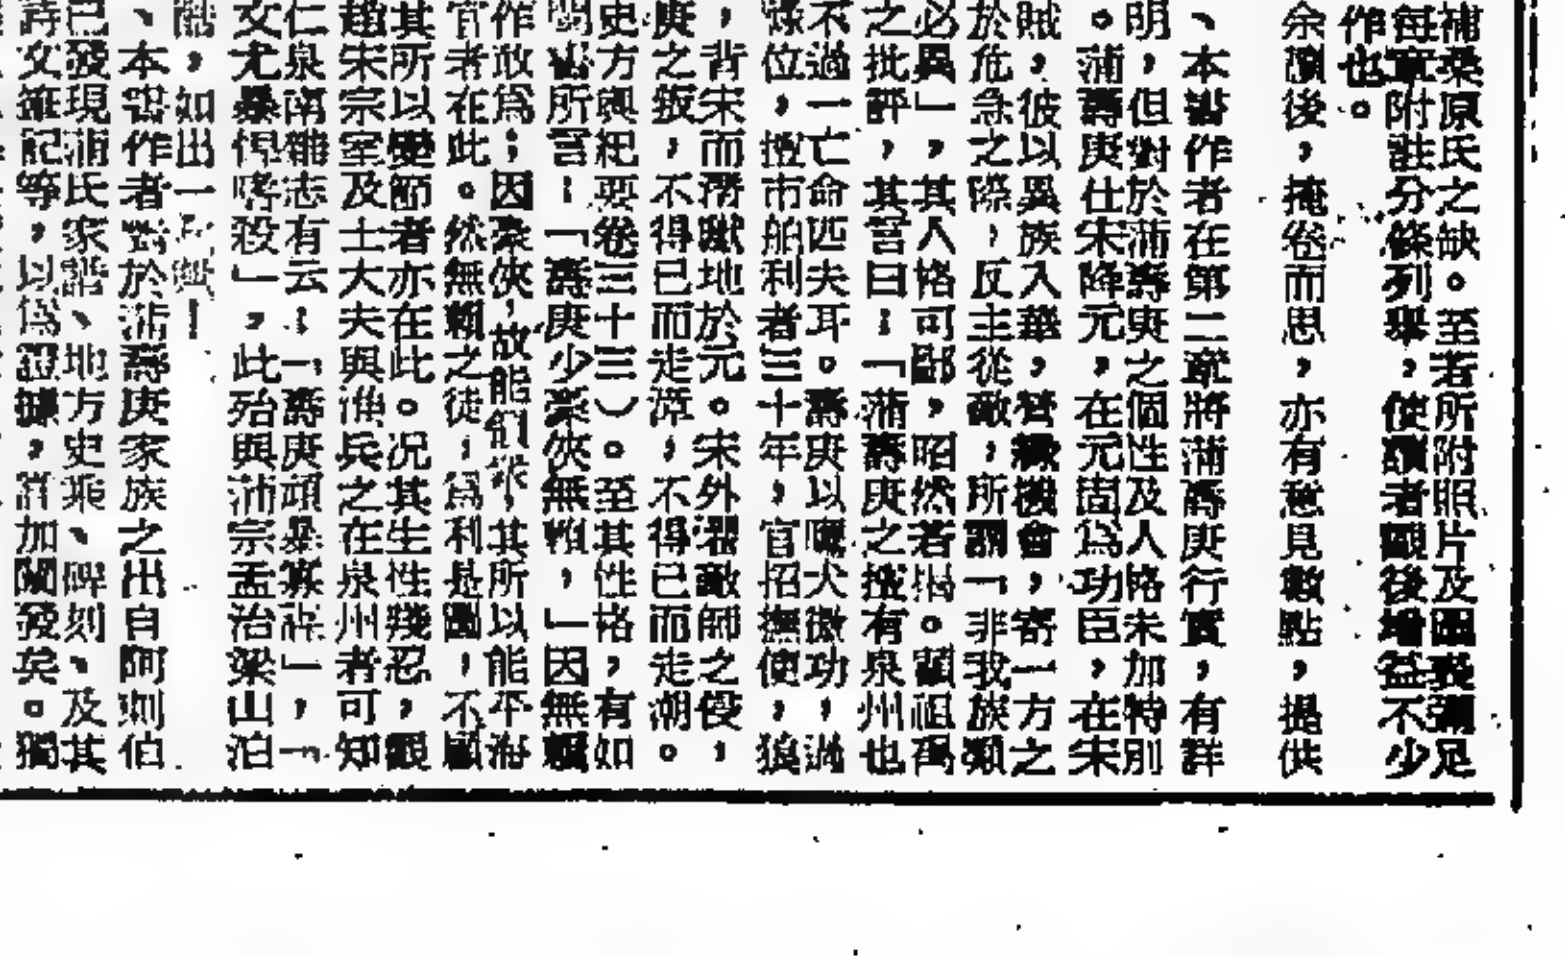 補桑原氏之缺。至若所附照片及圖表彌足
每章附註分條列舉，使讀者觀後增益不少
作也。
余讀後，掩卷而思，亦有意見數點，提供
、本書作者在第二章將蒲壽庚行實，有詳
明，但對於蒲壽庚之個性及人格未加特別
。蒲壽庚仕宋降元，在元固為功臣，在宋
賊，彼以異族入華，機會，寄一方之
於危急之際，反主從敵，所謂「非我族類
必異」，其人格可鄙，昭然若揭。顧祖禹
之批評，其言曰：「蒲壽庚之擅有泉州也
不過一亡命匹夫耳。壽庚以犬微功，過
祿位，擅市舶利者三十年，官招撫使，狼
，背宋而潛獻地於元。宋外敵師之侵，
庚之叛，不得已而走漳，不得已而走潮。
史方輿紀要卷三十三）。至其性格，有如
閩書所言：「壽庚少豪俠無賴，」因無賴
作敢為；因豪俠，故能糾眾，其所以能平海
官者在此。然無賴之徒，為利是圖，不顧
其所以變節者亦在此。况其生性殘忍，觀
趙宋宗室及士大夫與淮兵之在泉州者可知
仁泉南雜志有云：「壽庚頑暴寡謀」，「
文尤暴悍嗜殺」，此殆與蒲宗孟治梁山泊
酷，如出一
、本書作者對於蒲壽庚家族之出自阿剌伯
已發現蒲氏家譜、地方史乘、碑刻、及其
詩文筆記等，以為證據，詳加闡發矣。獨